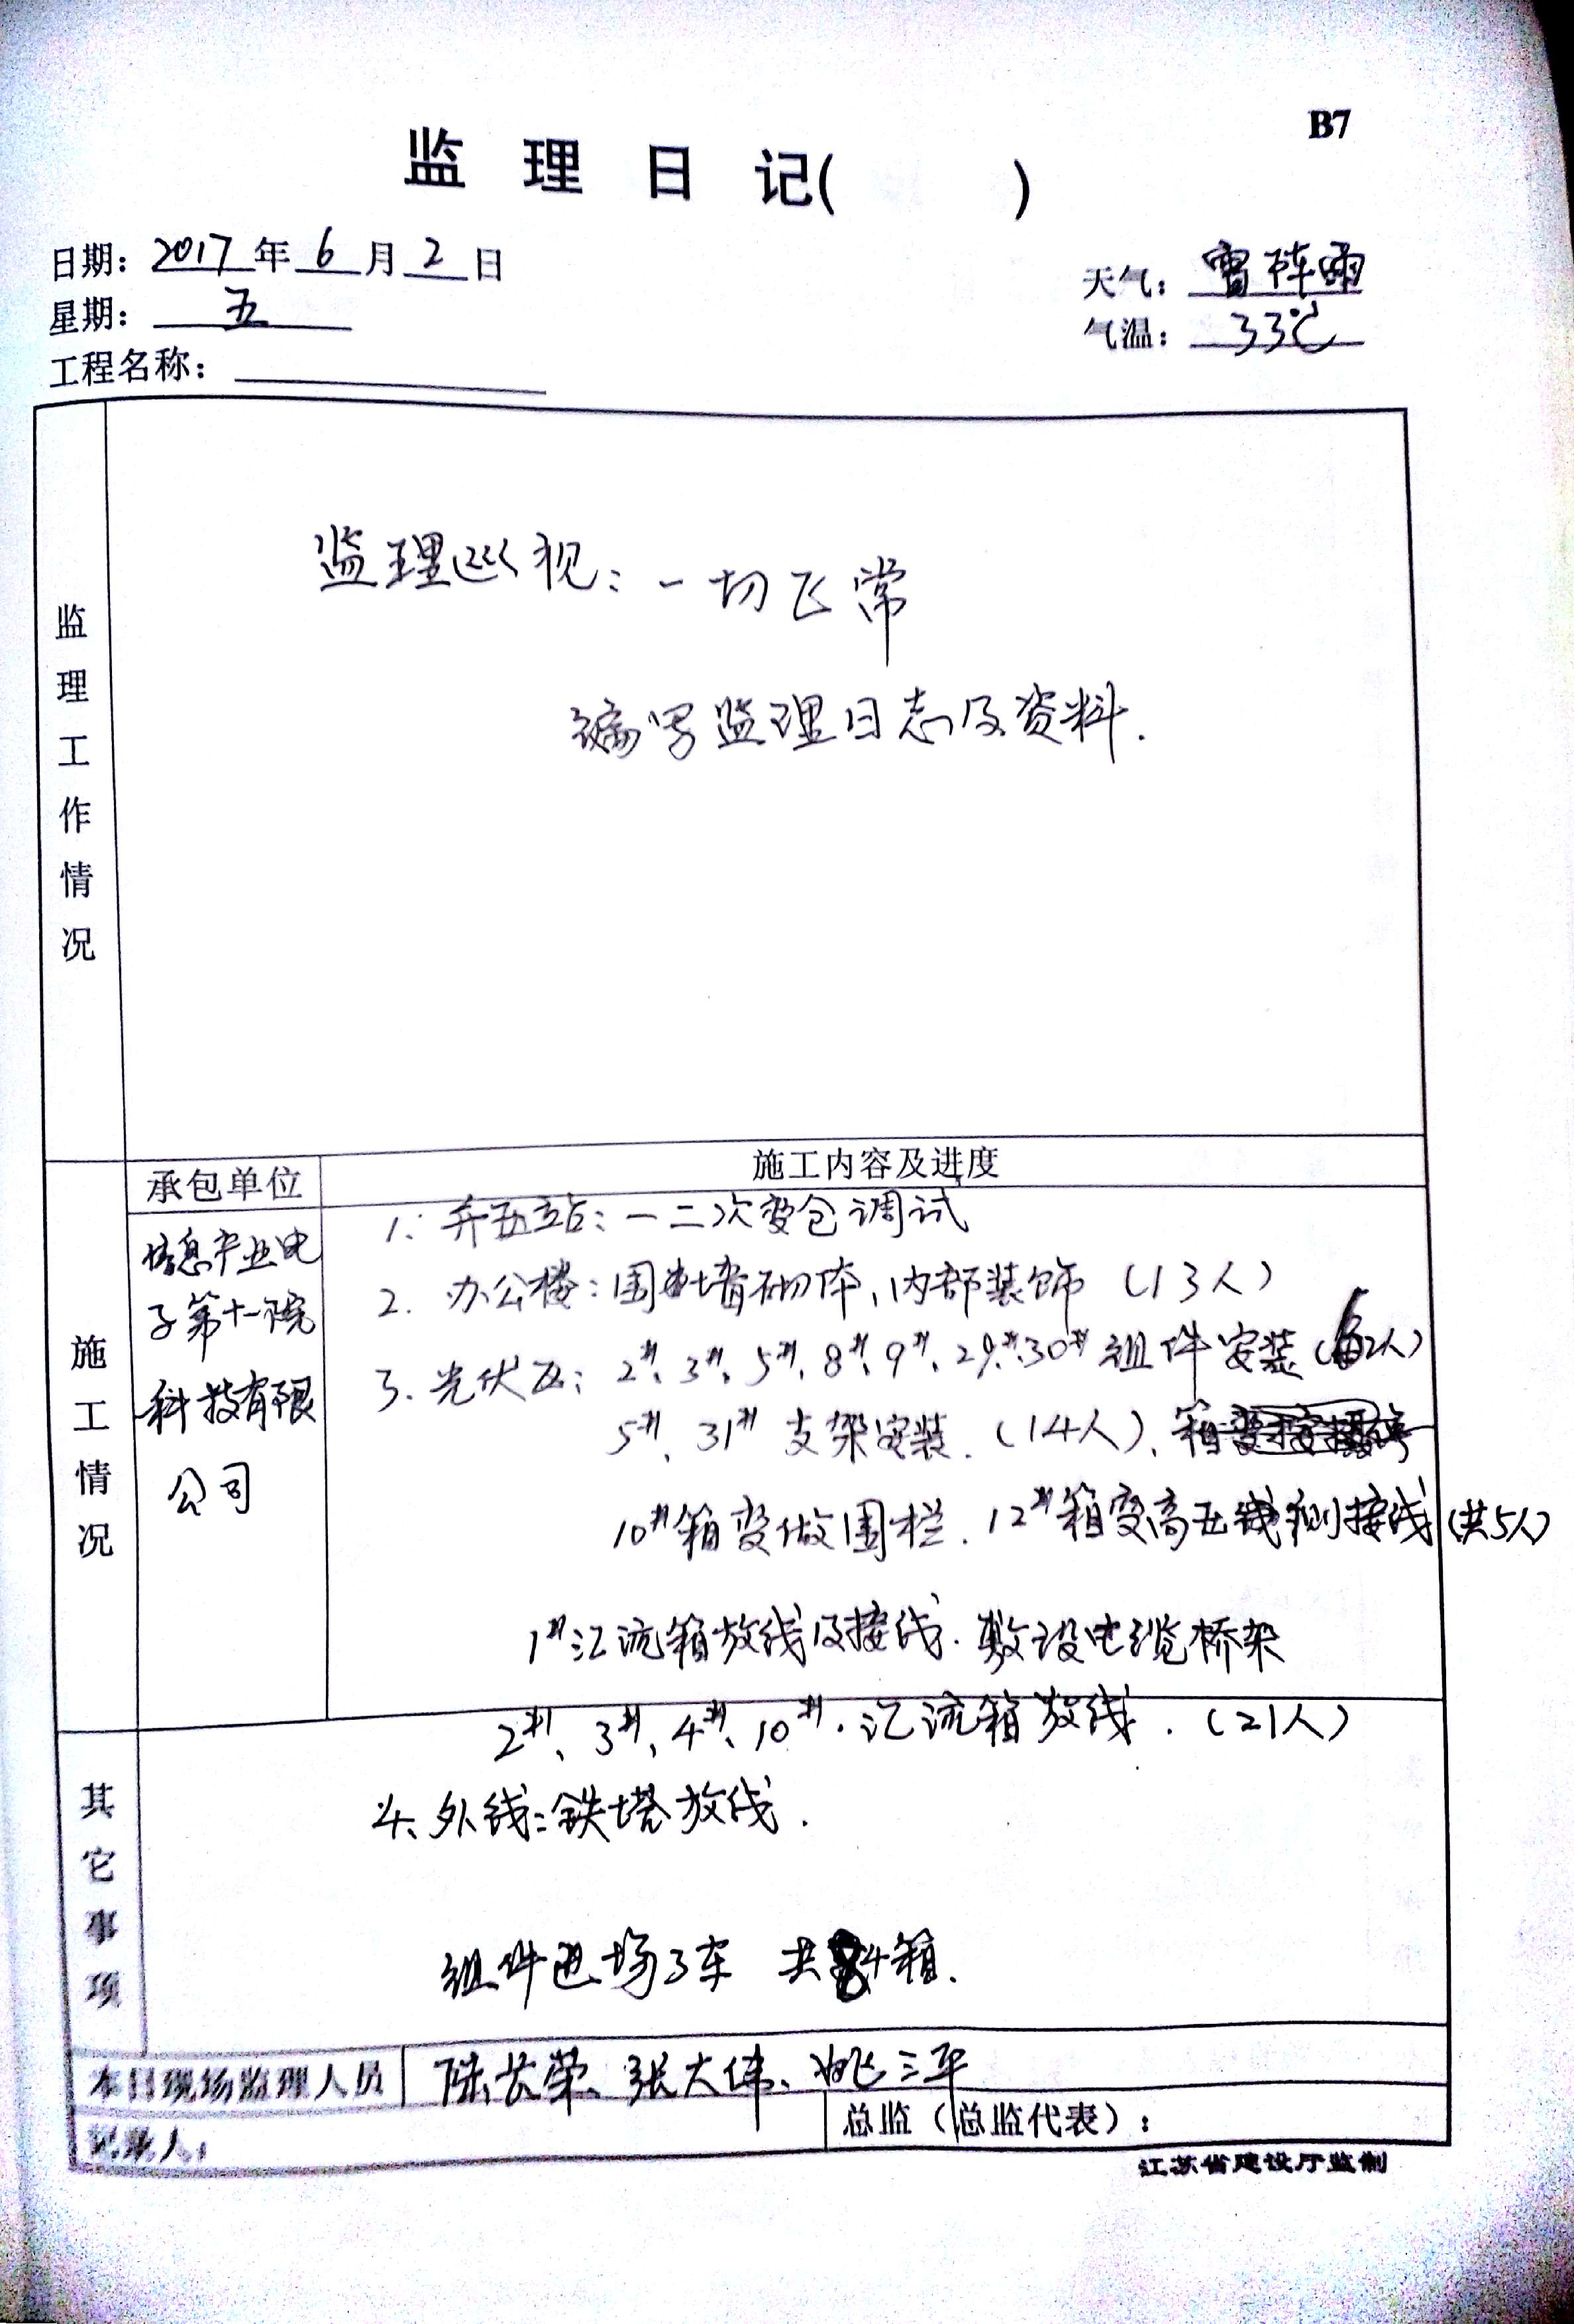 B7
监理日记( )
日期：2017年6月2日
天气：雷阵雨
星期：五
气温：33℃
工程名称：
监理工作情况
监理巡视：一切正常
编写监理日志及资料.
承包单位
施工内容及进度
施工情况
信息产业电
子第十一院
科技有限
公司
1. 升压站：一二次变仓调试
2. 办公楼：围墙砌体、内部装饰（13人）
3. 光伏区：2#、3#、5#、8#、9#、29#、30#组件安装（62人）
5#、31#支架安装.（14人）、
10#箱变做围栏. 12#箱变高压侧接线（共5人）
1#汇流箱放线及接线. 敷设电缆桥架
2#、3#、4#、10#.汇流箱放线.（21人）
4、外线：铁塔放线.
其它事项
组件进场3车 共84箱.
本日现场监理人员
陈长荣、张大伟、姚三平
记录人：
总监（总监代表）：
江苏省建设厅监制